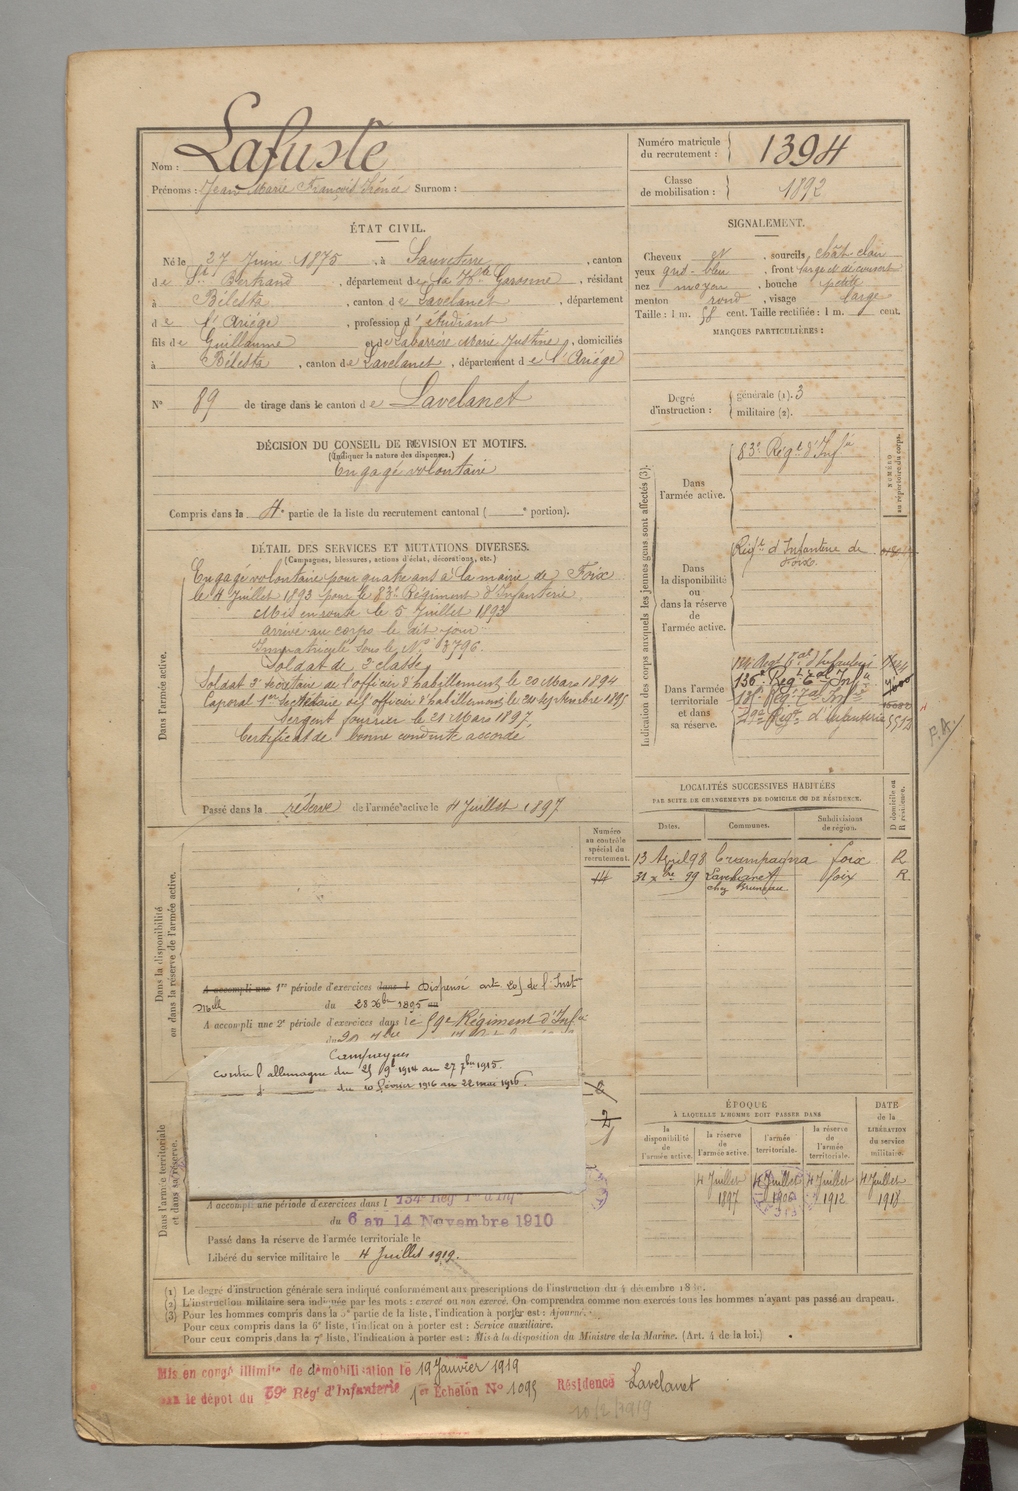 Nom : Lafuste
Prénoms : Jean Marie François Irénée Surnom :
Numéro matricule du recrutement : 1394
Classe de mobilisation : 1892
ÉTAT CIVIL.
Né le 27 Juin 1875, à Sauveterre, canton
de St Bertrand, département de la Hte Garonne, résidant
à Bélesta, canton de Lavelanet, département
de l'Ariége, profession d'étudiant
fils de Guillaume et de Labarrère Marie Justine, domiciliés
à Bélesta, canton de Lavelanet, département de l'Ariége
N° 89 de tirage dans le canton de Lavelanet
SIGNALEMENT.
Cheveux et, sourcils chât clair
yeux gris-bleu, front large et découvert
nez moyen, bouche petite
menton rond, visage large
Taille : 1 m. 58 cent. Taille rectifiée : 1 m. cent.
MARQUES PARTICULIÈRES :
Degré d'instruction : générale (1). 3
militaire (2).
DÉCISION DU CONSEIL DE REVISION ET MOTIFS.
(Indiquer la nature des dispenses.)
Engagé volontaire
Compris dans la 4e partie de la liste du recrutement cantonal ( e portion).
DÉTAIL DES SERVICES ET MUTATIONS DIVERSES.
(Campagnes, blessures, actions d'éclat, décorations, etc.)
Dans l'armée active.
Engagé volontaire pour quatre ans à la mairie de Foix
le 4 Juillet 1893 pour le 83e Régiment d'Infanterie.
Mis en route le 5 Juillet 1893
arrivé au corps le dit jour
Immatriculé sous le N° 3796.
Soldat de 2e classe
Soldat 3e secrétaire de l'officier d'habillement le 20 Mars 1894
Caporal 1er secrétaire de l'officier d'habillement le 24 septembre 1895
Sergent fourrier le 21 Mars 1897.
Certificat de bonne conduite accordé
Passé dans la réserve de l'armée active le 4 Juillet 1897
Indication des corps auxquels les jeunes gens sont affectés (3).
NUMÉRO au répertoire du corps.
Dans l'armée active.
83e Régt d'Infie
Dans la disponibilité ou dans la réserve de l'armée active.
Régt d'Infanterie de Foix.
Dans l'armée territoriale et dans sa réserve.
136e Régt Tal Infie
135e Régt Tal Infie
59e Régt d'Infanterie 5512
LOCALITÉS SUCCESSIVES HABITÉES
PAR SUITE DE CHANGEMENTS DE DOMICILE OU DE RÉSIDENCE.
Dates. Communes. Subdivisions de région. D domicile ou R résidence.
13 Avril 98 Crampagna Foix R
31 Xbre 99 Lavelanet Foix R
chez Bruneau
Dans la disponibilité ou dans la réserve de l'armée active.
Numéro au contrôle spécial du recrutement.
14
A accompli une 1re période d'exercices dans l Dispensé art. 205 de l'Inst
Melle du 28 Xbre 1895 au
A accompli une 2e période d'exercices dans le 59e Régiment d'Infie
Campagnes
contre l'allemagne du 25 9bre 1914 au 27 7bre 1915.
d° du 10 février 1916 au 22 mai 1916.
Dans l'armée territoriale et dans sa réserve.
2
A accompli une période d'exercices dans l 134e Rég Tal d'Infie
du 6 au 14 Novembre 1910
Passé dans la réserve de l'armée territoriale le
Libéré du service militaire le 4 Juillet 1919.
ÉPOQUE
À LAQUELLE L'HOMME DOIT PASSER DANS
DATE de la LIBÉRATION du service militaire.
la disponibilité de l'armée active. la réserve de l'armée active. l'armée territoriale. la réserve de l'armée territoriale.
4 Juillet 1897 4 Juillet 1906 4 Juillet 1912 4 Juillet 1918
(1) Le degré d'instruction générale sera indiqué conformément aux prescriptions de l'instruction du 4 décembre 18
(2) L'instruction militaire sera indiquée par les mots : exercé ou non exercé. On comprendra comme non exercés tous les hommes n'ayant pas passé au drapeau.
(3) Pour les hommes compris dans la 5e partie de la liste, l'indication à porter est : Ajourné.
Pour ceux compris dans la 6e liste, l'indication à porter est : Service auxiliaire.
Pour ceux compris dans la 7e liste, l'indication à porter est : Mis à la disposition du Ministre de la Marine. (Art. 4 de la loi.)
Mis en congé illimité de démobilisation le 19 Janvier 1919
par le dépôt du 59e Rég' d'Infanterie 1er Échelon N° 1095 Résidence Lavelanet
10/2/1919